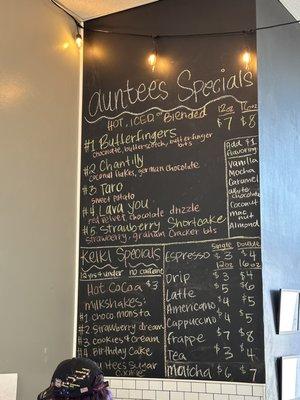 auntees Specials
HOT, ICED or Blended
12oz 16oz
$7 $8
#1 Butterfingers
chocolate, butterscotch, butterfinger bits
#2 Chantilly
coconut flakes, german chocolate
#3 Taro
sweet potato
#4 Lava you
red velvet chocolate drizzle
#5 Strawberry Shortcake
strawberry, graham cracker bits
Add $1
flavoring
Vanilla
Mocha
Caramel
White chocolate
Coconut
mac nut
Almond
Keiki Specials
12yrs + under no caffeine
Hot Cocoa $3
milkshakes:
#1 choco monsta
#2 Strawberry dream
#3 cookies + cream
#4 Birthday Cake
auntees Sugar
Single Double
Espresso $3 $4
12oz 16oz
Drip $4
Latte $5 $6
Americano $4 $5
Cappuccino $4 $5
frappe $7 $8
Tea $3 $4
Matcha $6 $7